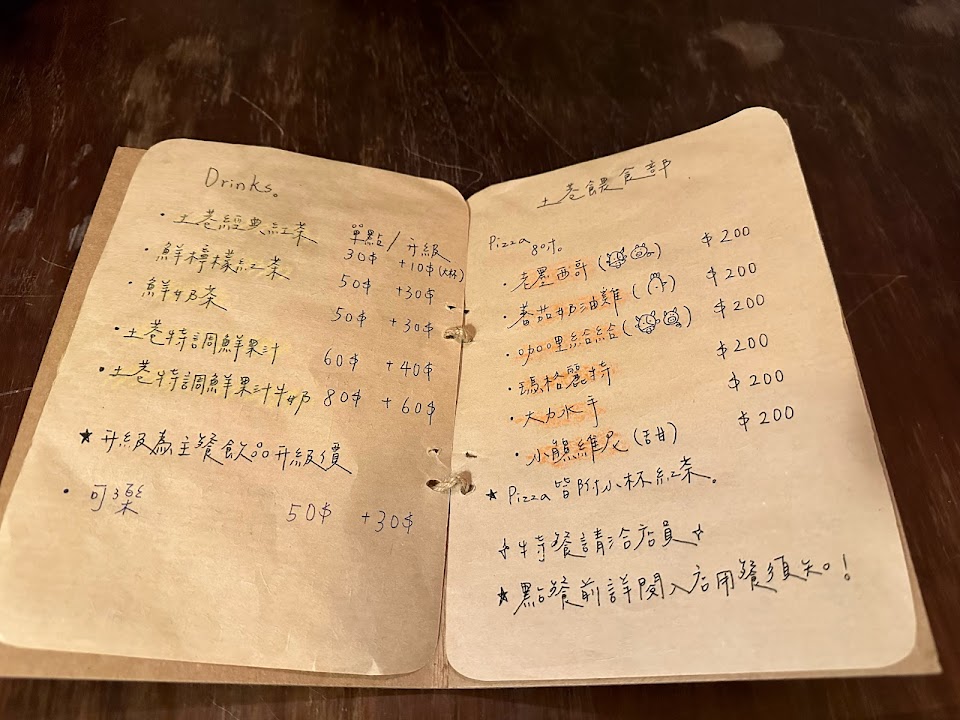 Drinks。
單點/升級
・土巷經典紅茶 30$ +10$(大杯)
・鮮檸檬紅茶 50$ +30$
・鮮奶茶 50$ +30$
・土巷特調鮮果汁 60$ +40$
・土巷特調鮮果汁牛奶 80$ +60$
★升級為主餐飲品升級價
・可樂 50$ +30$
土巷餵食部
Pizza 8吋。
・老墨西哥 $200
・蕃茄奶油雞 $200
・咖哩給給 $200
・瑪格麗特 $200
・大力水手 $200
・小熊維尼(甜) $200
★Pizza皆附小杯紅茶。
特餐請洽店員
★點餐前詳閱入店用餐須知!